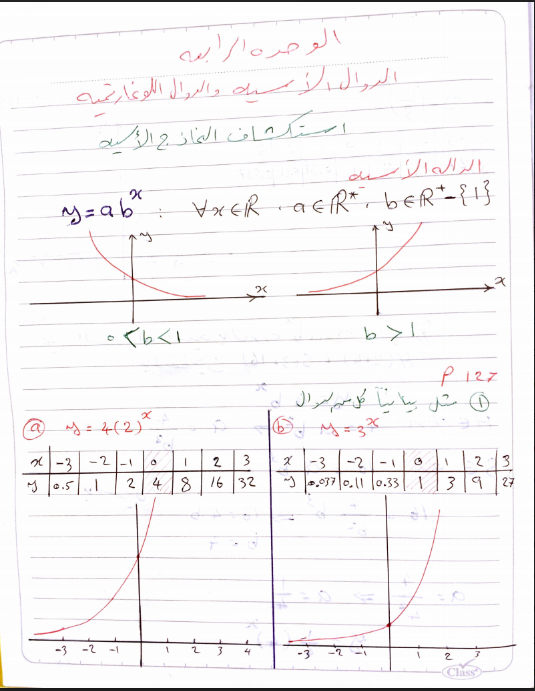 الوحده الرابعه
الدوال الأسيه والدوال اللوغاريتميه
استكشاف النماذج الأسيه
الداله الأسيه
y = ab^x : ∀x∈ℝ , a∈ℝ* , b∈ℝ⁺-{1}
y y
x x
0<b<1 b>1
P 127
① مثل بيانياً كل من الدوال
ⓐ y = 4(2)^x
x -3 -2 -1 0 1 2 3
y 0.5 1 2 4 8 16 32
-3 -2 -1 1 2 3 4
ⓑ y = 3^x
x -3 -2 -1 0 1 2 3
y 0.037 0.11 0.33 1 3 9 27
-3 -2 -1 1 2 3
Class